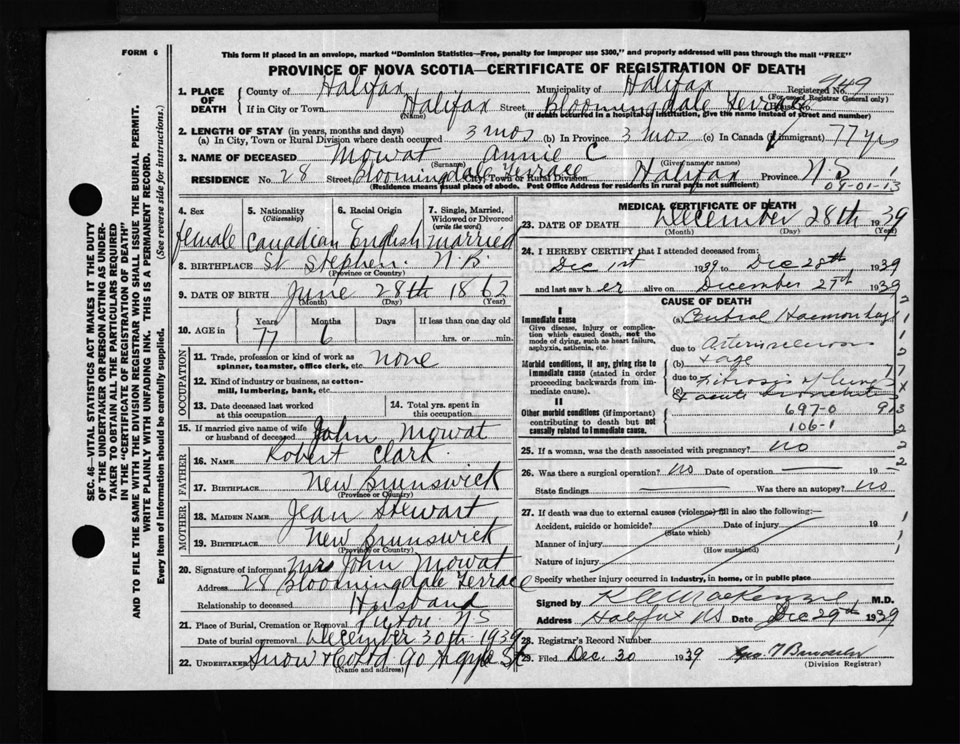 FORM 6
This form if placed in an envelope, marked "Dominion Statistics—Free, penalty for improper use $300," and properly addressed will pass through the mail "FREE"
PROVINCE OF NOVA SCOTIA—CERTIFICATE OF REGISTRATION OF DEATH
SEC. 46—VITAL STATISTICS ACT MAKES IT THE DUTY
OF THE UNDERTAKER OR PERSON ACTING AS UNDER-
TAKER TO OBTAIN ALL THE PARTICULARS REQUIRED
IN THE "CERTIFICATE OF REGISTRATION OF DEATH"
AND TO FILE THE SAME WITH THE DIVISION REGISTRAR WHO SHALL ISSUE THE BURIAL PERMIT.
WRITE PLAINLY WITH UNFADING INK. THIS IS A PERMANENT RECORD.
Every item of information should be carefully supplied. (See reverse side for instructions.)
1. PLACE OF DEATH County of Halifax Municipality of Halifax Registered No. 949
(For use of Registrar General only)
If in City or Town Halifax Street Bloomingdale Terrace House No.
(Name) (If death occurred in a hospital or institution, give the name instead of street and number)
2. LENGTH OF STAY (in years, months and days)
(a) In City, Town or Rural Division where death occurred 3 mos (b) In Province 3 mos (c) In Canada (if immigrant) 77 yrs
3. NAME OF DECEASED Mowat Annie C
(Surname) (Given name or names)
RESIDENCE No. 28 Street Bloomingdale Terrace City, Town or Rural Division Halifax Province N S
(Residence means usual place of abode. Post Office Address for residents in rural parts not sufficient) 09-01-13
4. Sex female
5. Nationality (Citizenship) Canadian
6. Racial Origin English
7. Single, Married, Widowed or Divorced (write the word) married
8. BIRTHPLACE St Stephen N.B.
(Province or Country)
9. DATE OF BIRTH June 28th 1862
(Month) (Day) (Year)
10. AGE in Years 77 Months 6 Days If less than one day old hrs. or min.
OCCUPATION
11. Trade, profession or kind of work as spinner, teamster, office clerk, etc. none
12. Kind of industry or business, as cotton-mill, lumbering, bank, etc.
13. Date deceased last worked at this occupation
14. Total yrs. spent in this occupation
15. If married give name of wife or husband of deceased John Mowat
FATHER
16. NAME Robert Clark
17. BIRTHPLACE New Brunswick
(Province or Country)
MOTHER
18. MAIDEN NAME Jean Stewart
19. BIRTHPLACE New Brunswick
(Province or Country)
20. Signature of informant Mrs John Mowat
Address 28 Bloomingdale Terrace
Relationship to deceased Husband
21. Place of Burial, Cremation or Removal Pictou N S
Date of burial or removal December 30th 1939
22. UNDERTAKER Snow & Co Ltd 90 Argyle St
(Name and address)
MEDICAL CERTIFICATE OF DEATH
23. DATE OF DEATH December 28th 1939
(Month) (Day) (Year)
24. I HEREBY CERTIFY that I attended deceased from:
Dec 1st 1939 to Dec 28th 1939
and last saw her alive on December 27th 1939
CAUSE OF DEATH
Immediate cause
Give disease, injury or complication which caused death, not the mode of dying, such as heart failure, asphyxia, asthenia, etc.
(a) Cerebral Haemorrhage
due to Arteriosclerosis
Morbid conditions, if any, giving rise to immediate cause (stated in order proceeding backwards from immediate cause).
(b) & age
due to Fibrosis of lungs
(c) & acute
II
Other morbid conditions (if important) contributing to death but not causally related to immediate cause.
697-0
106-1
25. If a woman, was the death associated with pregnancy? no
26. Was there a surgical operation? no Date of operation 19
State findings Was there an autopsy? no
27. If death was due to external causes (violence) fill in also the following:—
Accident, suicide or homicide? Date of injury 19
(State which)
Manner of injury
(How sustained)
Nature of injury
Specify whether injury occurred in industry, in home, or in public place
Signed by K A MacKenzie M.D.
Address Halifax NS Date Dec 29th 1939
28. Registrar's Record Number
29. Filed Dec. 30 1939
(Division Registrar)